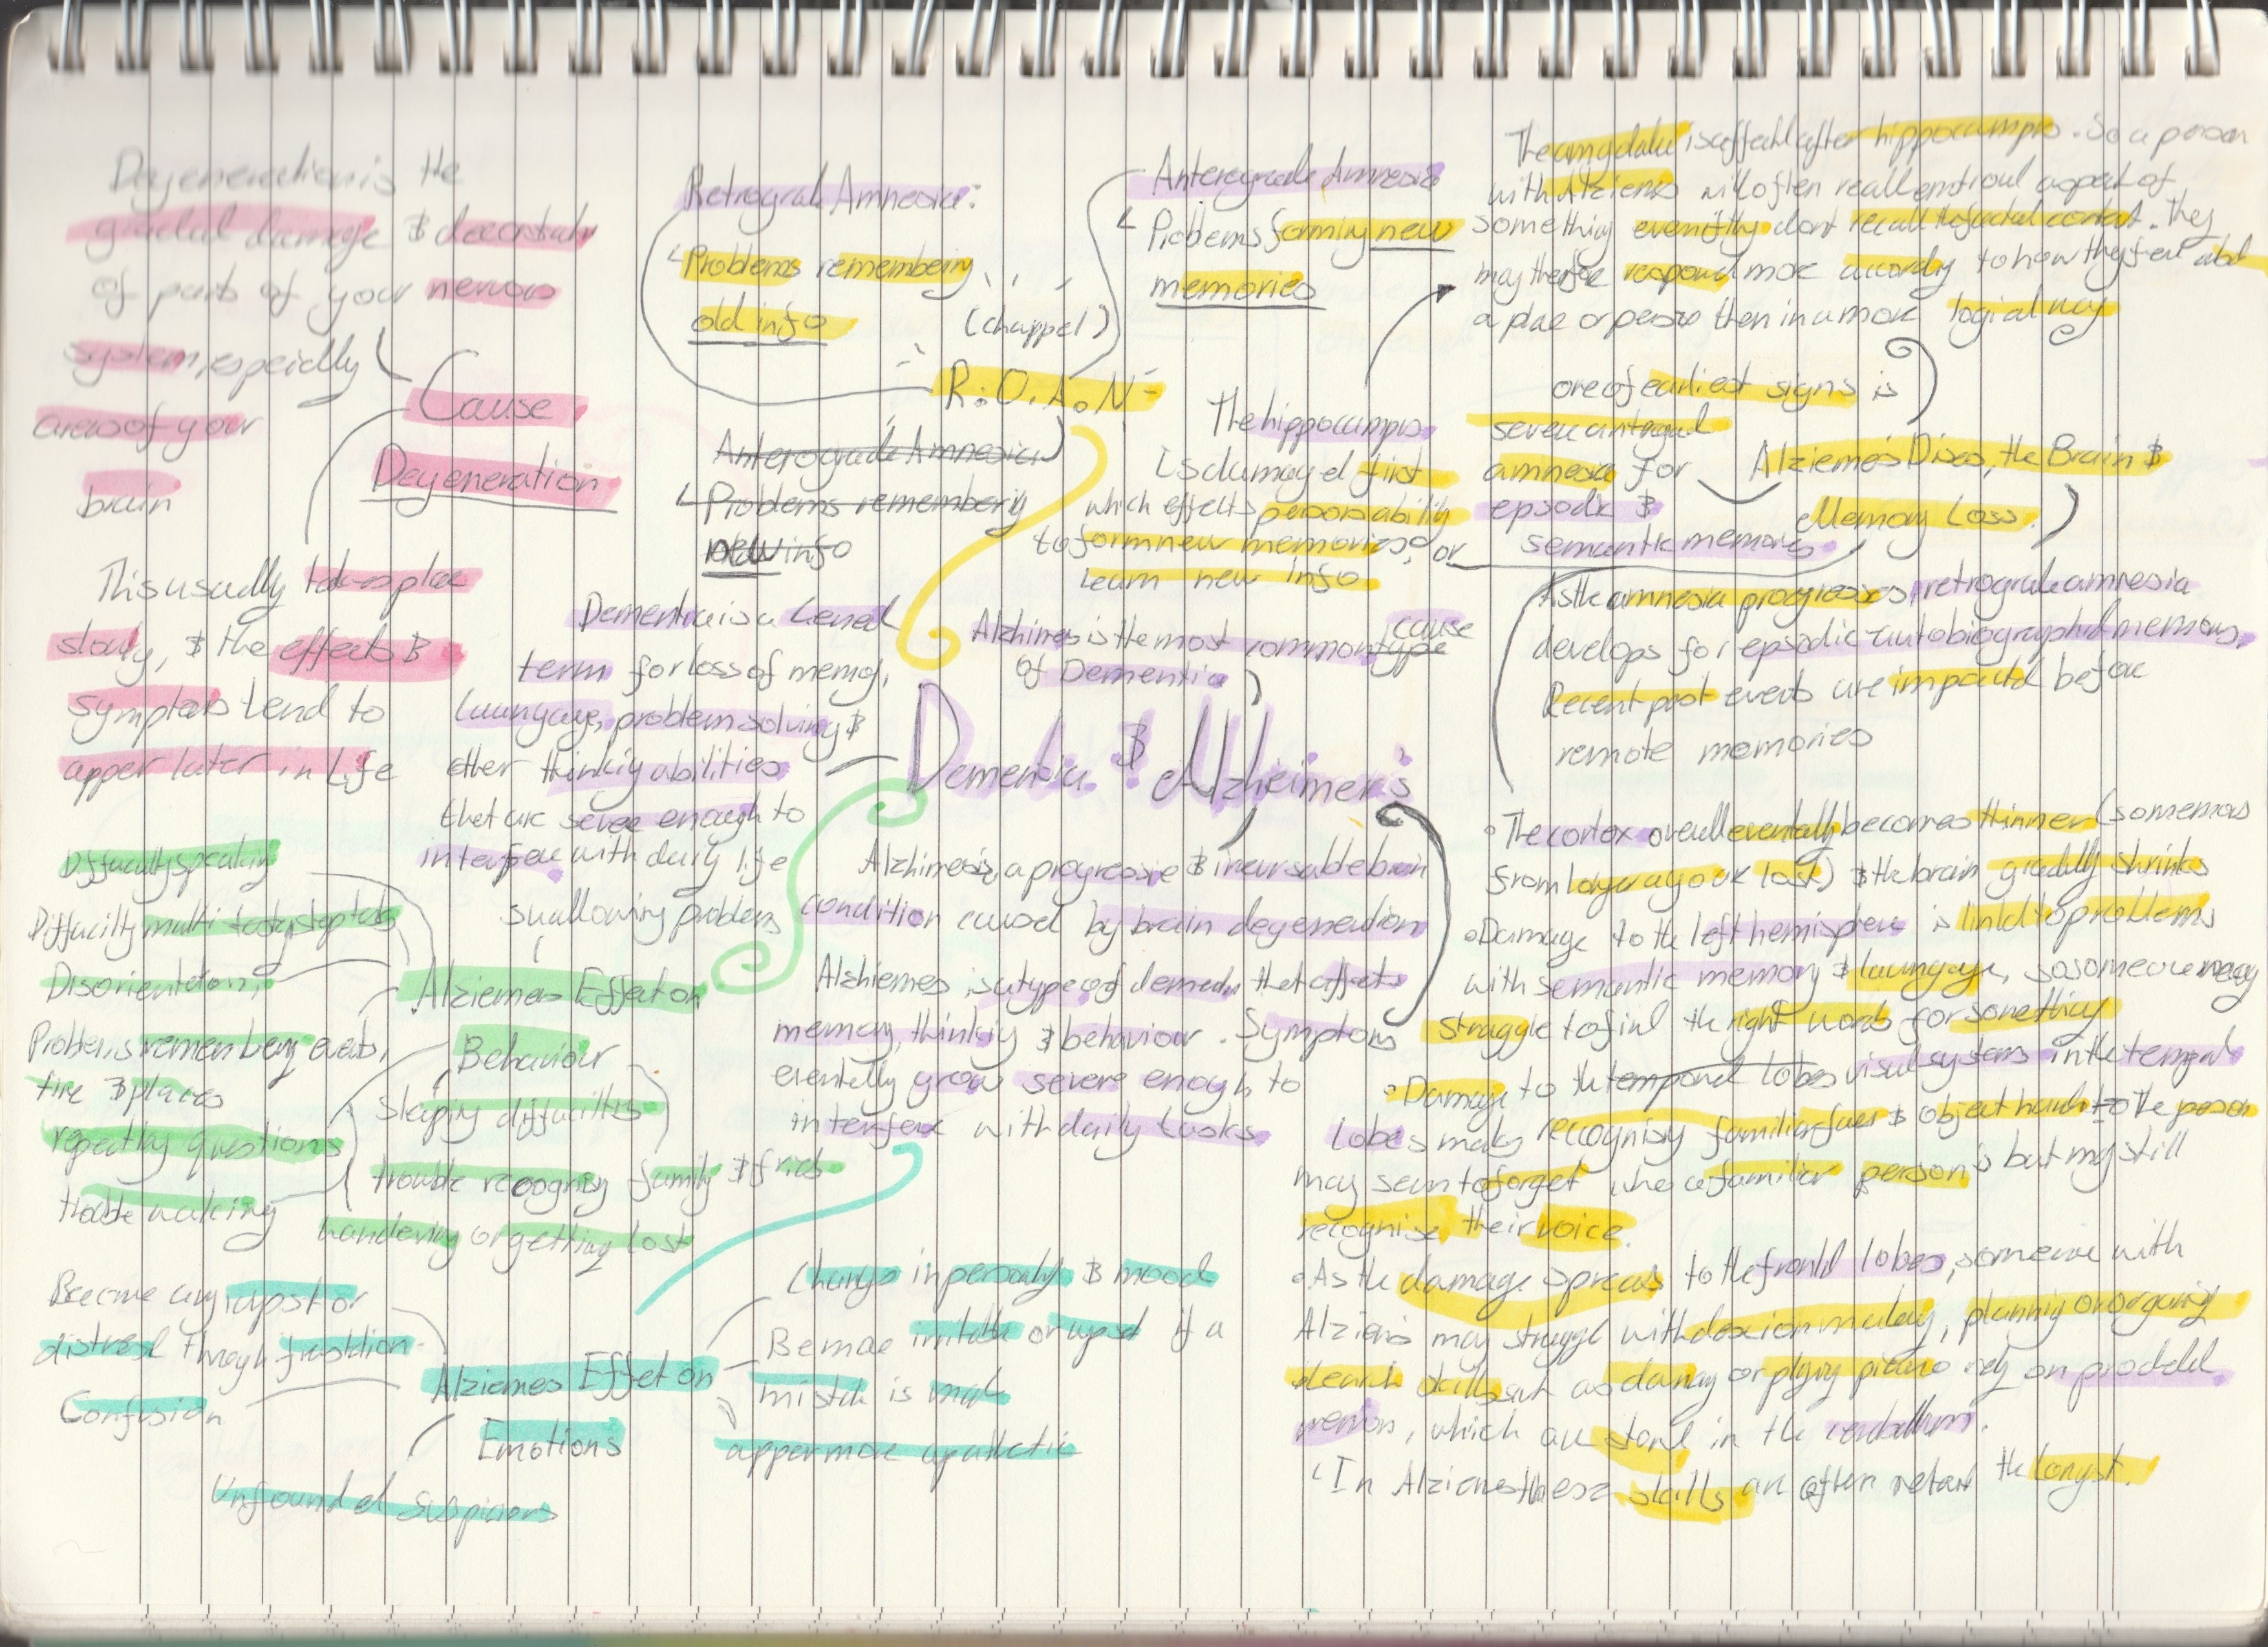 Degeneration is the
gradual damage &
of parts of your nervous
system, especially
areas of your
brain
Cause
Degeneration
This usually takes place
slowly, & the effects &
symptoms tend to
apper later in Life
Retrograde Amnesia:
Problems remembering
old info
(chappel)
R.O.A.N
Anterograde Amnesia
Problems forming new
memories
Anterograde Amnesia
Problems remembering
new info
The hippocampus
Is damaged first
which effects persons ability
to form new memories, or
learn new info
The amygdala is affected after hippocampus. So a person
with will often recall emotional aspect of
something even if they dont recall the factual content. They
may therefore respond more accordly to how they feel about
a place or person then in a more logical way
one of earliest signs is
amnesia for
episodic &
semantic memories
Alziemer's Diseas, the Brain &
Memory Loss.
As the amnesia progresses retrograde amnesia
develops for episodic autobiographical memories.
Recent past events are impacted before
remote memories
Dementia is a General
term for loss of memory,
Launguage, problem solving &
other thinking abilities
that are severe enough to
interfere with daily life
Alzhimers is the most common type cause
of Dementia
Dementia & Alzheimer's
Alzhimers is a progressive & irreversable brain
condition caused by brain degeneration
Alzhiemers is a type of dementia that affects
memory, thinking & behaviour. Symptoms
eventally grow severe enough to
interfere with daily tasks.
Diffucalty speaking
Diffucilty multi step tasks
Disorientation,
Problems remembering events,
time & places
repeating questions
trouble walking
swallowing problems
Alziemers Effect on
Behaviour
sleeping difficulties
trouble recognising family & friends
wandering or getting lost
Become angry upset or
distresed through frustration
Confusion
Alziemers Effect on
Emotions
Unfounded Suspicions
Changes in personality & mood
Become irritable or upset if a
mistake is made
apper more apathetic
The cortex overall eventally becomes thinner (so memories
from longer ago are lost) & the brain gradually shrinks
Damage to the left hemisphere is linked to problems
with semantic memory & launguage, so someone may
struggle to find the right words for something
Damage to the temporal lobes visual systems in the temporal
Lobes makes recognising familiar faces & objects harder to the person
may seem to forget who a familier person is but may still
recognise their voice.
As the damage spreads to the frontal lobes, someone with
may struggle with planning or organising
skills such as dancing or playing piano rely on
memory, which are stored in the cerebellum.
In these skills are often retained the longest.